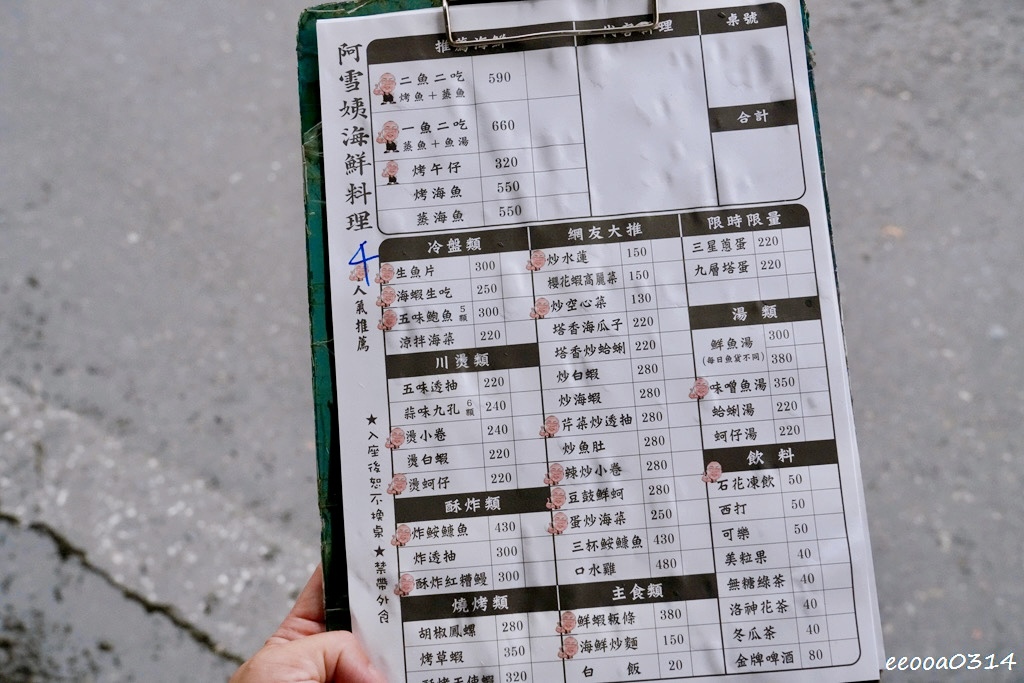 阿雪姨海鮮料理
4
人氣推薦
★入座後恕不換桌★禁帶外食
推薦海鮮
桌號
合計
二魚二吃 590
烤魚+蒸魚
一魚二吃 660
蒸魚+魚湯
烤午仔 320
烤海魚 550
蒸海魚 550
冷盤類
生魚片 300
海蝦生吃 250
五味鮑魚 5顆 300
涼拌海菜 220
川燙類
五味透抽 220
蒜味九孔 6顆 240
燙小卷 240
燙白蝦 220
燙蚵仔 220
酥炸類
炸鮟鱇魚 430
炸透抽 300
酥炸紅糟鰻 300
燒烤類
胡椒鳳螺 280
烤草蝦 350
酥烤天使蝦 320
網友大推
炒水蓮 150
櫻花蝦高麗菜 150
炒空心菜 130
塔香海瓜子 220
塔香炒蛤蜊 220
炒白蝦 280
炒海蝦 280
芹菜炒透抽 280
炒魚肚 280
辣炒小卷 280
豆鼓鮮蚵 280
蛋炒海菜 250
三杯鮟鱇魚 430
口水雞 480
主食類
鮮蝦粄條 380
海鮮炒麵 150
白飯 20
限時限量
三星蔥蛋 220
九層塔蛋 220
湯類
鮮魚湯 300
(每日魚貨不同) 380
味噌魚湯 350
蛤蜊湯 220
蚵仔湯 220
飲料
石花凍飲 50
西打 50
可樂 50
美粒果 40
無糖綠茶 40
洛神花茶 40
冬瓜茶 40
金牌啤酒 80
eeooa0314